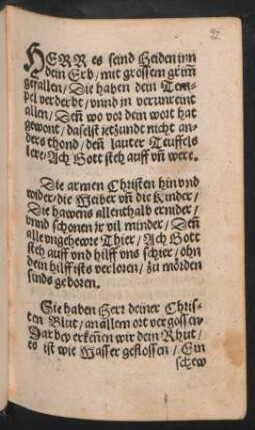 HERR es seind Heiden inn
dein Erb / mit grossem grim̃
gefallen / Die haben dein Tem-
pel verderbt / vnnd in verunreint
allen / Deñ wo vor dem wort hat
gewont / daselst ietzundt nicht an-
ders thond / deñ lauter Teuffels
lere / Ach Gott steh auff vñ were.
Die armen Christen hin vnd
wider / die Weiber vñ die Kinder /
Die hawens allenthalb ernider /
vnnd schonen jr vil minder / Deñ
alle vngehewre Thier / Ach Gott
steh auff vnd hilff vns schier / ohn
dein hilff ists verloren / zu mörden
sinds geboren.
Sie haben Herr deiner Chris-
ten Blut / an allem ort vergossen /
Darbey erkeñen wir dein Rhut /
es ist wie Wasser geflossen / Ein
schew